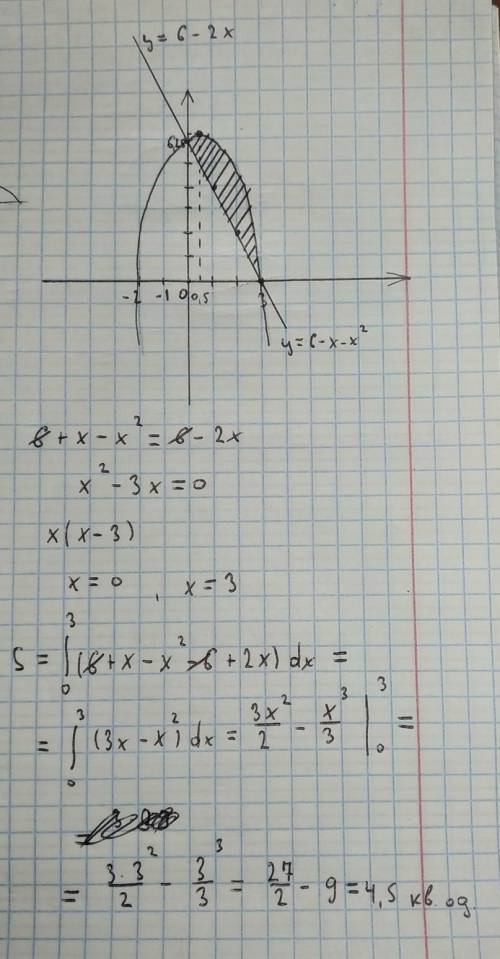 y = 6 - 2x
6,25
-2 -1 0 0,5 3
y = 6 - x - x²
6 + x - x² = 6 - 2x
x² - 3x = 0
x(x - 3)
x = 0 , x = 3
S = ∫₀³ (6 + x - x² - 6 + 2x) dx =
= ∫₀³ (3x - x²) dx = 3x²/2 - x³/3 |₀³ =
=
= 3·3²/2 - 3³/3 = 27/2 - 9 = 4,5 кв. од.